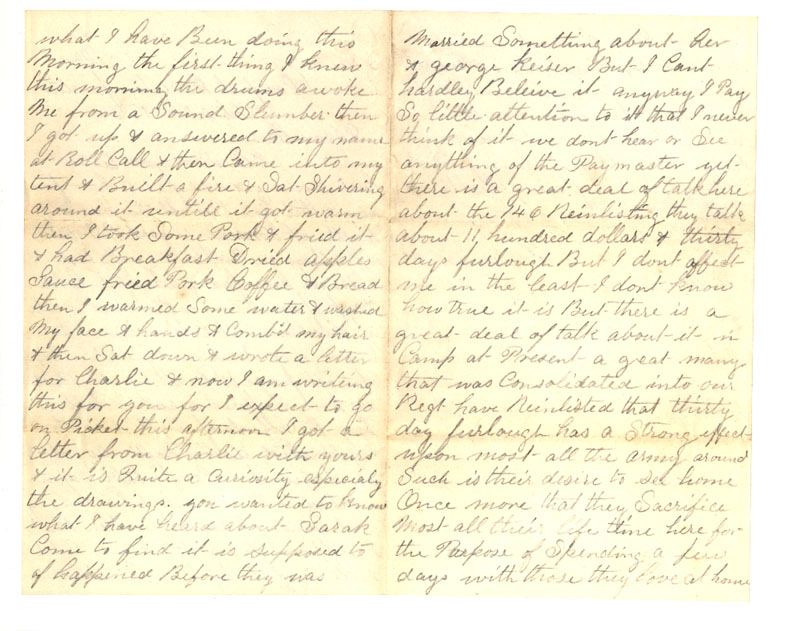 what I have Been doing this
Morning the first thing I knew
this morning the drums awoke
Me from a Sound Slumber then
I got up & answered to my name
at Roll Call & then Came into my
tent & Built a fire & Sat Shivering
around it untill it got warm
then I took Some Pork & fried it
& had Breakfast Dried apples
Sauce fried Pork Coffee & Bread
then I warmed Some water & washed
My face & hands & Comb'd my hair
& then Sat down & wrote a letter
for Charlie & now I am writing
this for you for I expect to go
on Picket this afternoon I got a
letter from Charlie with yours
& it is Quite a Curiosity especialy
the drawings. you wanted to know
what I have heard about Sarah
Come to find it is supposed to
of happened Before they was
Married Something about her
& george Keiser But I Cant
hardley Beleive it anyway I Pay
So little attention to it that I never
think of it we dont hear or See
anything of the Paymaster yet
there is a great deal of talk here
about the 146 Reinlisting they talk
about 11 hundred dollars & thirty
days furlough But I dont affect
me in the least I dont know
how true it is But there is a
great deal of talk about it in
Camp at Present a geat many
that was Consolidated into our
Regt have Reinlisted that thirty
day furlough has a Strong effect
upon most all the army around
Such is their desire to See home
Once more that they Sacrifice
Most all their life time here for
the Purpose of Spending a few
days with those they love at home